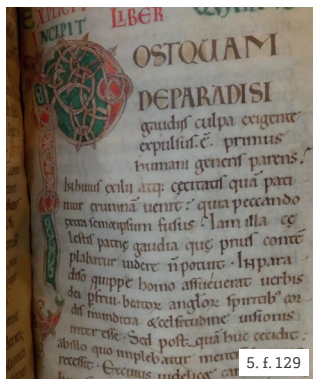 EXPLICIT LIBER
INCIPIT
POSTQUAM
DEPARADISI
gaudiis culpa exigente
expulsus. ē. primus
humani generis parens.
huius exilii atq; cęcitatis quā pati
mur erumnā uenit; quia peccando
extra semetipsum fusus; Iam illa cę
lestis patrię gaudia quę prius contē
plabatur uidere n̄ potuit. In para
diso quippe homo assueuerat uerbis
dei pfrui. beator angloꝝ spiritib; cor
dis munditia & celsitudine uisionis
interesse. Sed postquā huc cecidit.
ab illo quo implebatur mentis
recessit.
5. f. 129